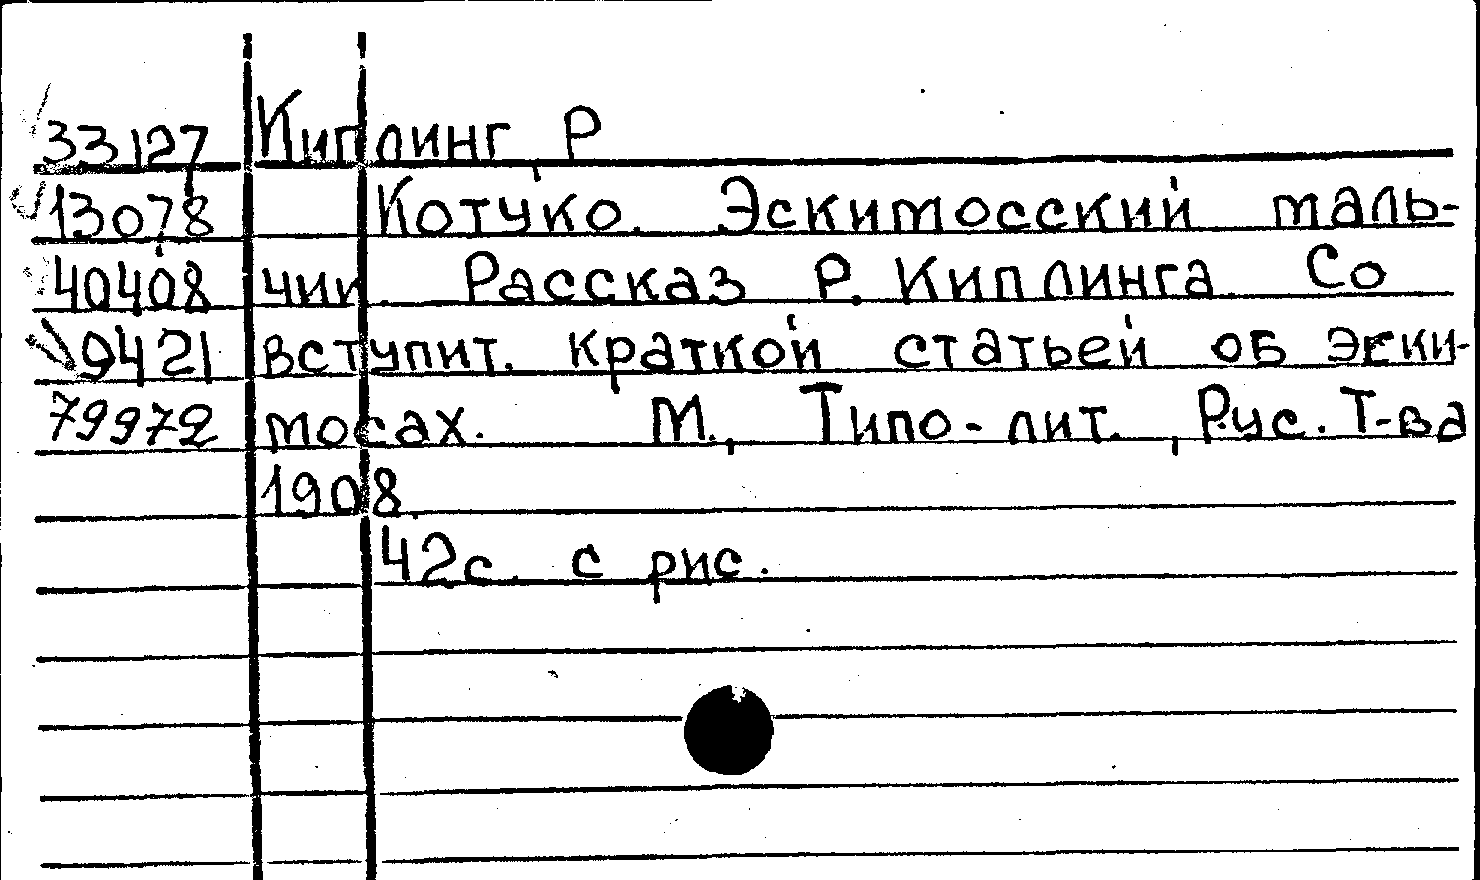 33127 Киплинг, Р
13078 Котуко. Эскимосский маль-
40408 чик. Рассказ Р. Киплинга. Со
9421 вступит. краткой статьей об эски-
79972 мосах. М., Типо-лит., Рус. Т-ва
1908.
42с. с рис.